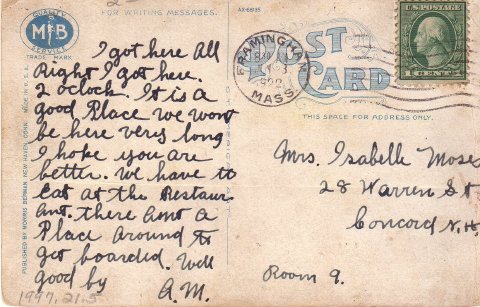 QUALITY
MB
SERVICE
TRADE MARK
FOR WRITING MESSAGES.
AX-68135
POST CARD
U.S. POSTAGE
1 CENT 1
FRAMINGHAM
MASS.
THIS SPACE FOR ADDRESS ONLY.
PUBLISHED BY MORRIS BERMAN, NEW HAVEN, CONN. MADE IN U.S.A.
I got here All
Right I got here.
2 oclock. It is a
good Place we wont
be here very long
I hope you are
better. We have to
Eat at the Restaur
ant. there aint a
Place around to
get boarded. Well
good by
A.M.
Mrs. Isabelle Moses
28 Warren St
Concord N.H.
Room 9.
1997.21.5